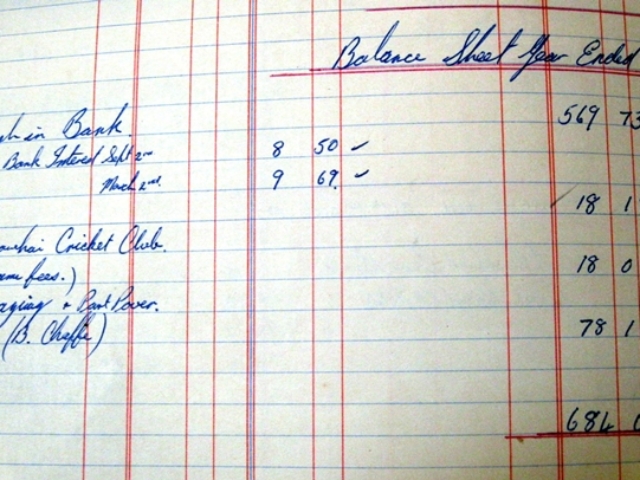 Balance Sheet Year Ended
in Bank. 569 73
Bank Interest Sept 2nd 8 50 ✓
March 2nd. 9 69. ✓
18 1
Cricket Club.
fees.) 18 0
+
(B. Chaffe) 78 1
684 0